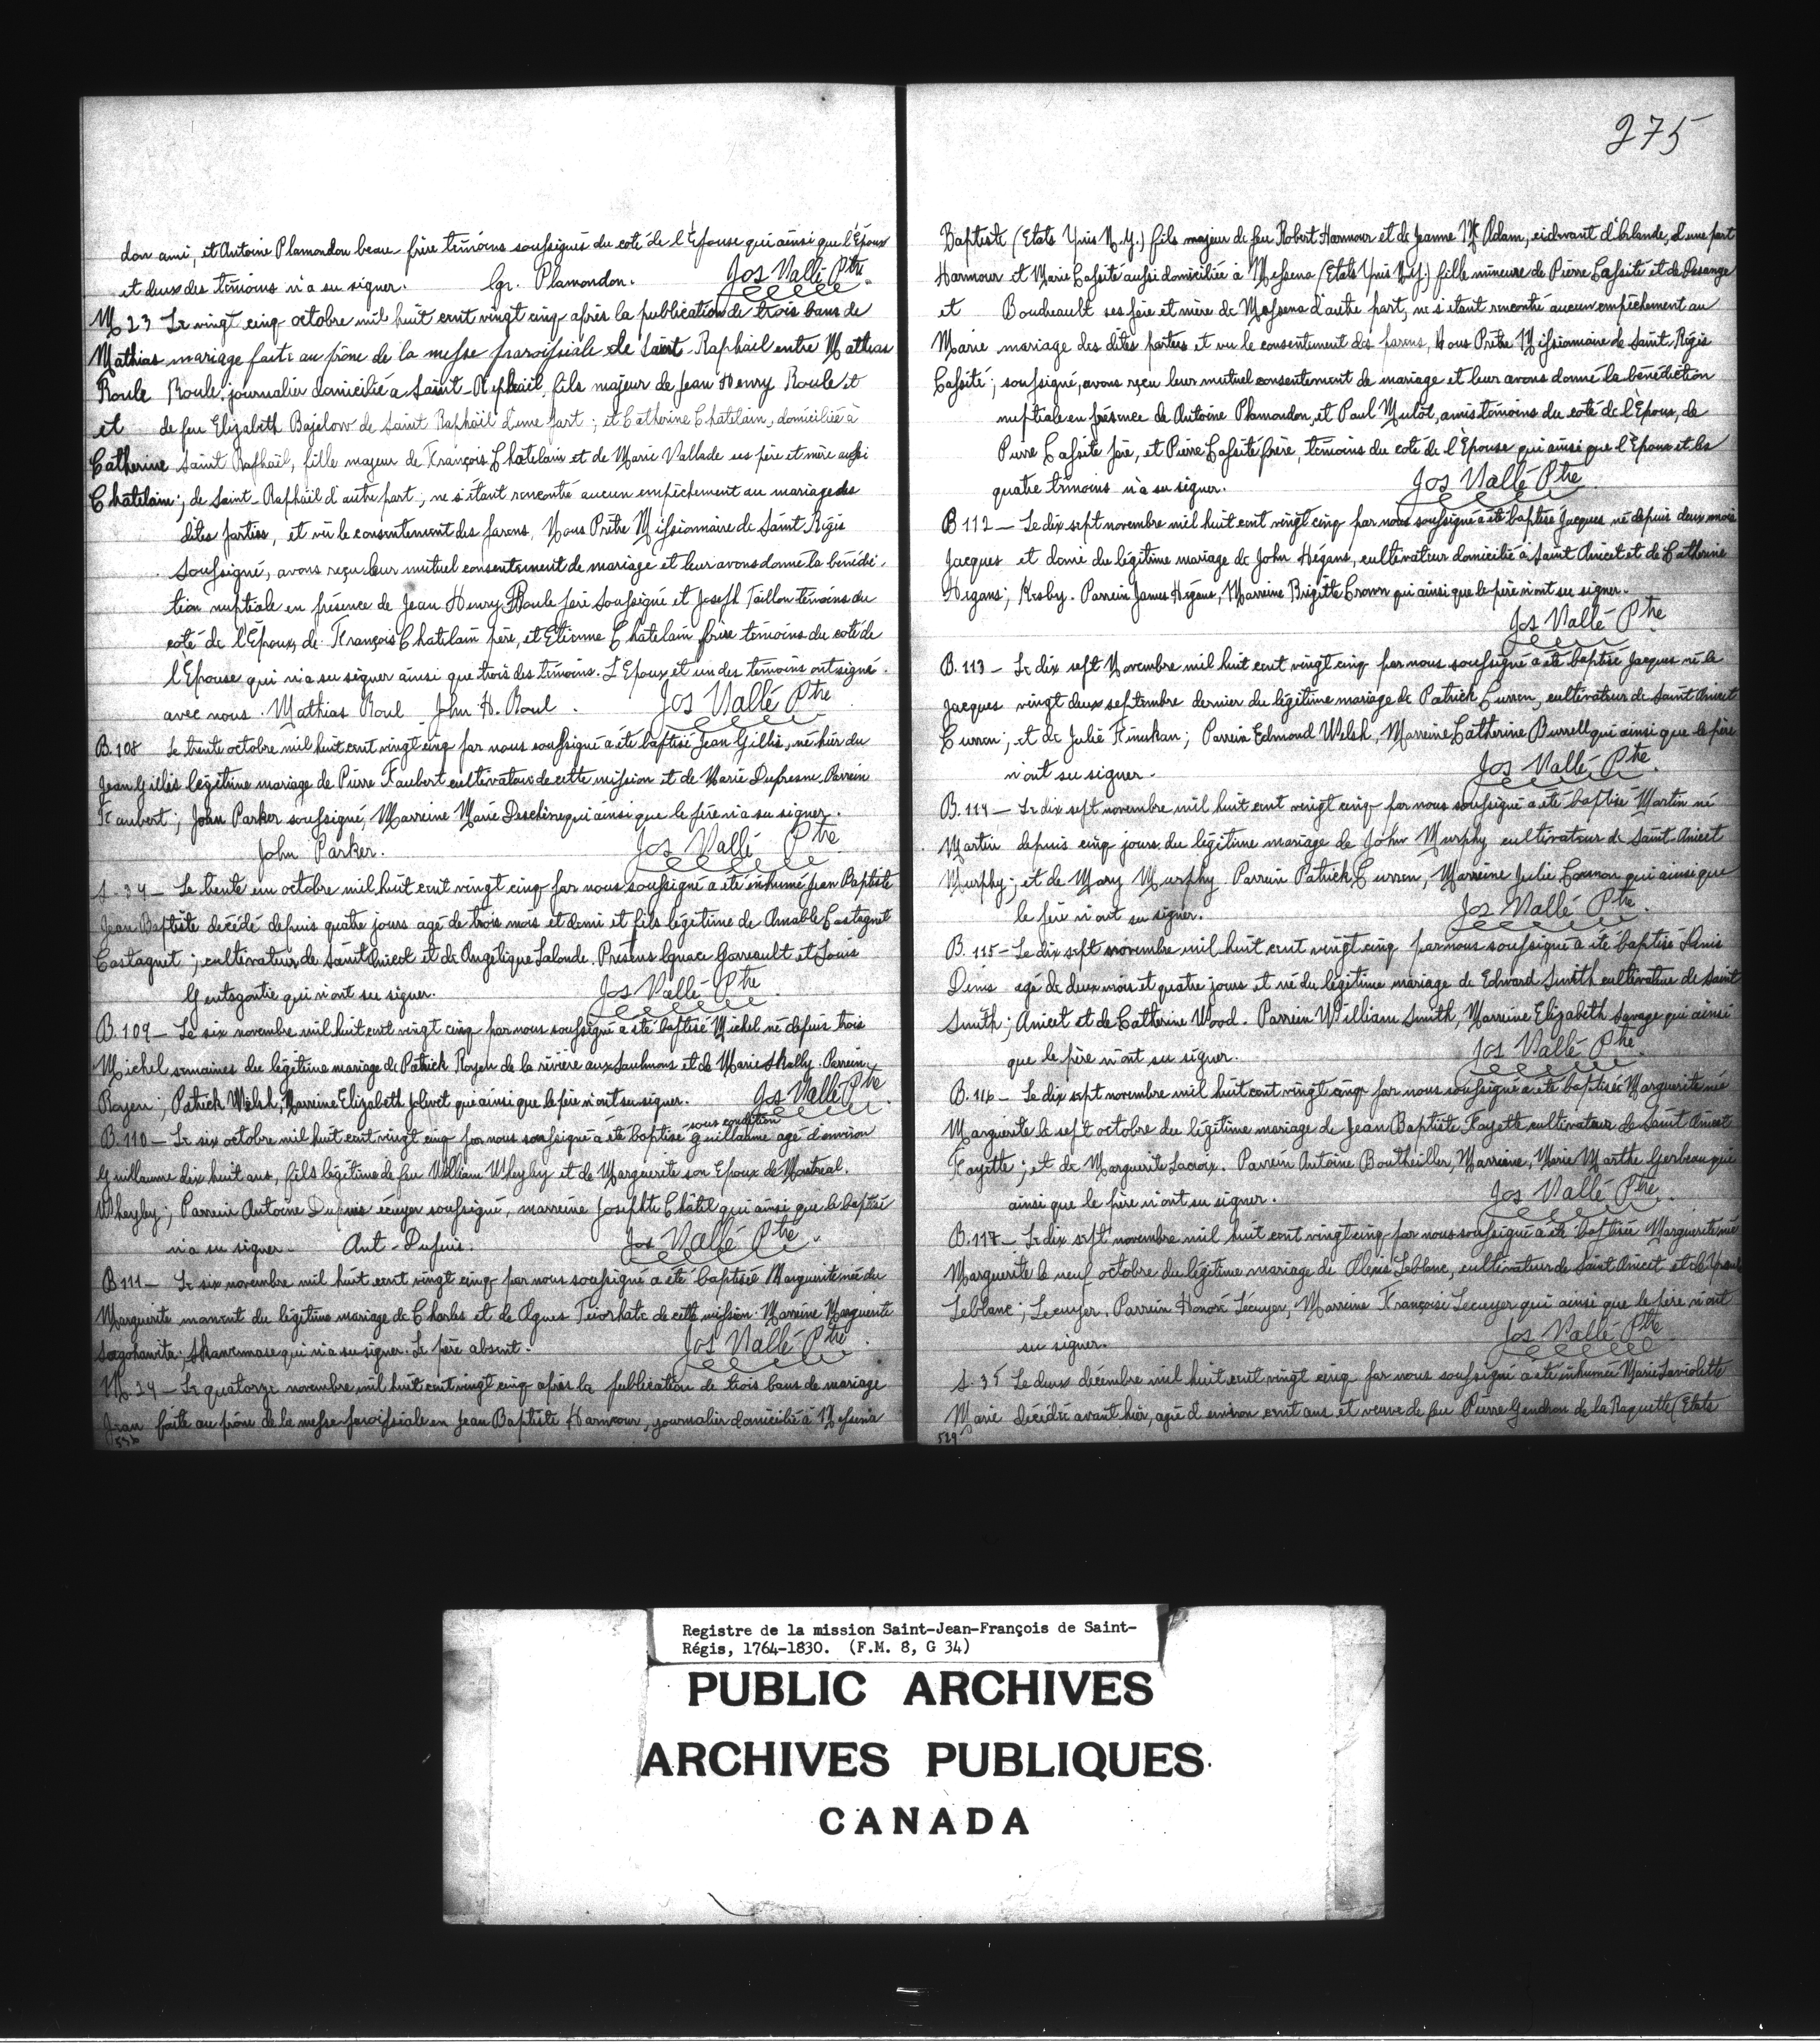 don ami, et Antoine Plamondon beau-frère témoins soussignés du coté de l'Epouse qui ainsi que l'Epoux
et deux des témoins n'a su signer. Igr. Plamondon. Jos Vallé Ptre
M 23 Le vingt cinq octobre mil huit cent vingt cinq après la publication de trois bans de
Mathias mariage faite au prône de la messe paroissiale de Saint-Raphaël entre Mathias
Roule Roule, journalier domicilié à Saint-Raphaël, fils majeur de Jean Henry Roule et
et de feu Elizabeth Bajelow de Saint Raphaël d'une part; et Catherine Chatelain, domiciliée à
Catherine Saint Raphaël, fille majeur de François Chatelain et de Marie Vallade ses père et mère aussi
Chatelain; de Saint-Raphaël d'autre part; ne s'étant rencontré aucun empêchement au mariage des
dites parties, et vû le consentement des parens, Nous Prêtre Missionnaire de Saint Régis
soussigné, avons reçu leur mutuel consentement de mariage et leur avons donné la bénédi-
tion nuptiale en présence de Jean Henry Roule père soussigné et Joseph Taillon témoins du
coté de l'Epoux, de François Chatelain père, et Etienne Chatelain frère témoins du coté de
l'Epouse qui n'a su signer ainsi que trois des témoins. L'Epoux et un des témoins ont signé
avec nous. Mathias Roul John H. Roul. Jos Vallé Ptre
B.108 Le trente octobre mil huit cent vingt cinq par nous soussigné a été baptisé Jean Gillis, né hier du
Jean Gillis légitime mariage de Pierre Faubert cultivateur de cette mission et de Marie Dufresne. Parrein
Faubert; John Parker soussigné, Marreine Marie Deschêne qui ainsi que le père n'a su signer.
John Parker. Jos Vallé Ptre
S.34 - Le trente un octobre mil huit cent vingt cinq par nous soussigné a été inhumé Jean Baptiste
Jean Baptiste décédé depuis quatre jours agé de trois mois et demi et fils légitime de Amable Castagnet
Castagnet; cultivateur de Saint Anicet et de Angélique Lalonde. Présens Ignace Garreault et Louis
qui n'ont su signer. Jos Vallé Ptre
B.109 - Le six novembre mil huit cent vingt cinq par nous soussigné a été baptisé Michel né depuis trois
Michel semaines du légitime mariage de Patrick Royen de la rivière aux Saulmons et de Marie Skally. Parrein
Royen; Patrick Welsh, Marreine Elizabeth Jolivet qui ainsi que le père n'ont su signer. Jos Vallé Ptre
sous condition
B.110 - Le six octobre mil huit cent vingt cinq par nous soussigné a été baptisé Guillaume agé d'environ
Guillaume dix huit ans, fils légitime de feu William Wheyley et de Marguerite son Epoux de Montreal.
Wheyley; Parrein Antoine Dupuis écuyer soussigné, marreine Josephte Châtel qui ainsi que le baptisé
n'a su signer - Ant-Dupuis. Jos Vallé Ptre
B 111 - Le six novembre mil huit cent vingt cinq par nous soussigné a été baptisée Marguerite née du
Marguerite moment du légitime mariage de Charles et de Agnes Tiiorhate de cette mission. Marreine Marguerite
Sagohawita; Skawennase qui n'a su signer. Le père absent. Jos Vallé Ptre
M.24 - Le quatorze novembre mil huit cent vingt cinq après la publication de trois bans de mariage
Jean faite au prône de la messe paroissiale en Jean Baptiste Harmour, journalier domicilié à Messena
275
Baptiste (Etats Unis N.Y.) fils majeur de feu Robert Harmour et de Jeanne Mc Adam, cidevant d'Irlande, d'une part
Harmour et Marie Cassité aussi domiciliée à Messena (Etats Unis N.Y.) fille mineure de Pierre Cassité et de Pesange
et Boudreault ses père et mère de Messena d'autre part, ne s'étant rencontré aucun empêchement au
Marie mariage des dites parties et vu le consentement des parens, Nous Prêtre Missionnaire de Saint Régis
Cassité; soussigné, avons reçu leur mutuel consentement de mariage et leur avons donné la bénédiction
nuptiale en présence de Antoine Plamondon, et Paul Mutôt, amis témoins du coté de l'Epoux, de
Pierre Cassité père, et Pierre Cassité frère, témoins du coté de l'Epouse qui ainsi que l'Epoux et les
quatre témoins n'a su signer. Jos Vallé Ptre
B 112 - Le dix sept novembre mil huit cent vingt cinq par nous soussigné a été baptisé Jacques né depuis deux mois
Jacques et demi du légitime mariage de John Hégans, cultivateur domicilié à Saint Anicet et de Catherine
Hegans; Kesby. Parrein James Hégans, Marreine Brigitte Crown qui ainsi que le père n'ont su signer.
Jos Vallé Ptre
B.113 - Le dix sept Novembre mil huit cent vingt cinq par nous soussigné a été baptisé Jacques né le
Jacques vingt deux septembre dernier du légitime mariage de Patrick Curren, cultivateur de Saint Anicet
Curren; et de Julie Finukan; Parrein Edmond Welsh, Marreine Catherine Burrell qui ainsi que le père
n'ont su signer. Jos Vallé Ptre
B.114 - Le dix sept novembre mil huit cent vingt cinq par nous soussigné a été baptisé Martin né
Martin depuis cinq jours du légitime mariage de John Murphy cultivateur de Saint Anicet
Murphy; et de Mary Murphy. Parrein Patrick Curren, Marreine Julie Connon qui ainsi que
le père n'ont su signer. Jos Vallé Ptre
B.115 - Le dix sept novembre mil huit cent vingt cinq par nous soussigné a été baptisé Dinis
Dinis agé de deux mois et quatre jours et né du légitime mariage de Edward Smith cultivateur de Saint
Smith; Anicet et de Catherine Wood. Parrein William Smith, Marreine Elizabeth Savage qui ainsi
que le père n'ont su signer. Jos Vallé Ptre
B.116 - Le dix sept novembre mil huit cent vingt cinq par nous soussigné a été baptisée Marguerite née
Marguerite le sept octobre du légitime mariage de Jean Baptiste Fayette cultivateur de Saint Anicet
Fayette; et de Marguerite Lacroix. Parrein Antoine Boutheiller, Marreine, Marie Marthe Gerbeau qui
ainsi que le père n'ont su signer. Jos Vallé Ptre
B.117 - Le dix sept novembre mil huit cent vingt cinq par nous soussigné a été baptisée Marguerite née
Marguerite le neuf octobre du légitime mariage de Alexis Leblanc, cultivateur de Saint Anicet et de
Leblanc; Lecuyer. Parrein Honoré Lécuyer, Marreine Françoise Lecuyer qui ainsi que le père n'ont
su signer. Jos Vallé Ptre
S.35 Le deux décembre mil huit cent vingt cinq par nous soussigné a été inhumée Marie Laviolette
Marie décédée avant hier, agée d'environ cent ans et veuve de feu Pierre Gendron de la Raquette (Etats
529
Registre de la mission Saint-Jean-François de Saint-
Régis, 1764-1830. (F.M. 8, G 34)
PUBLIC ARCHIVES
ARCHIVES PUBLIQUES
CANADA